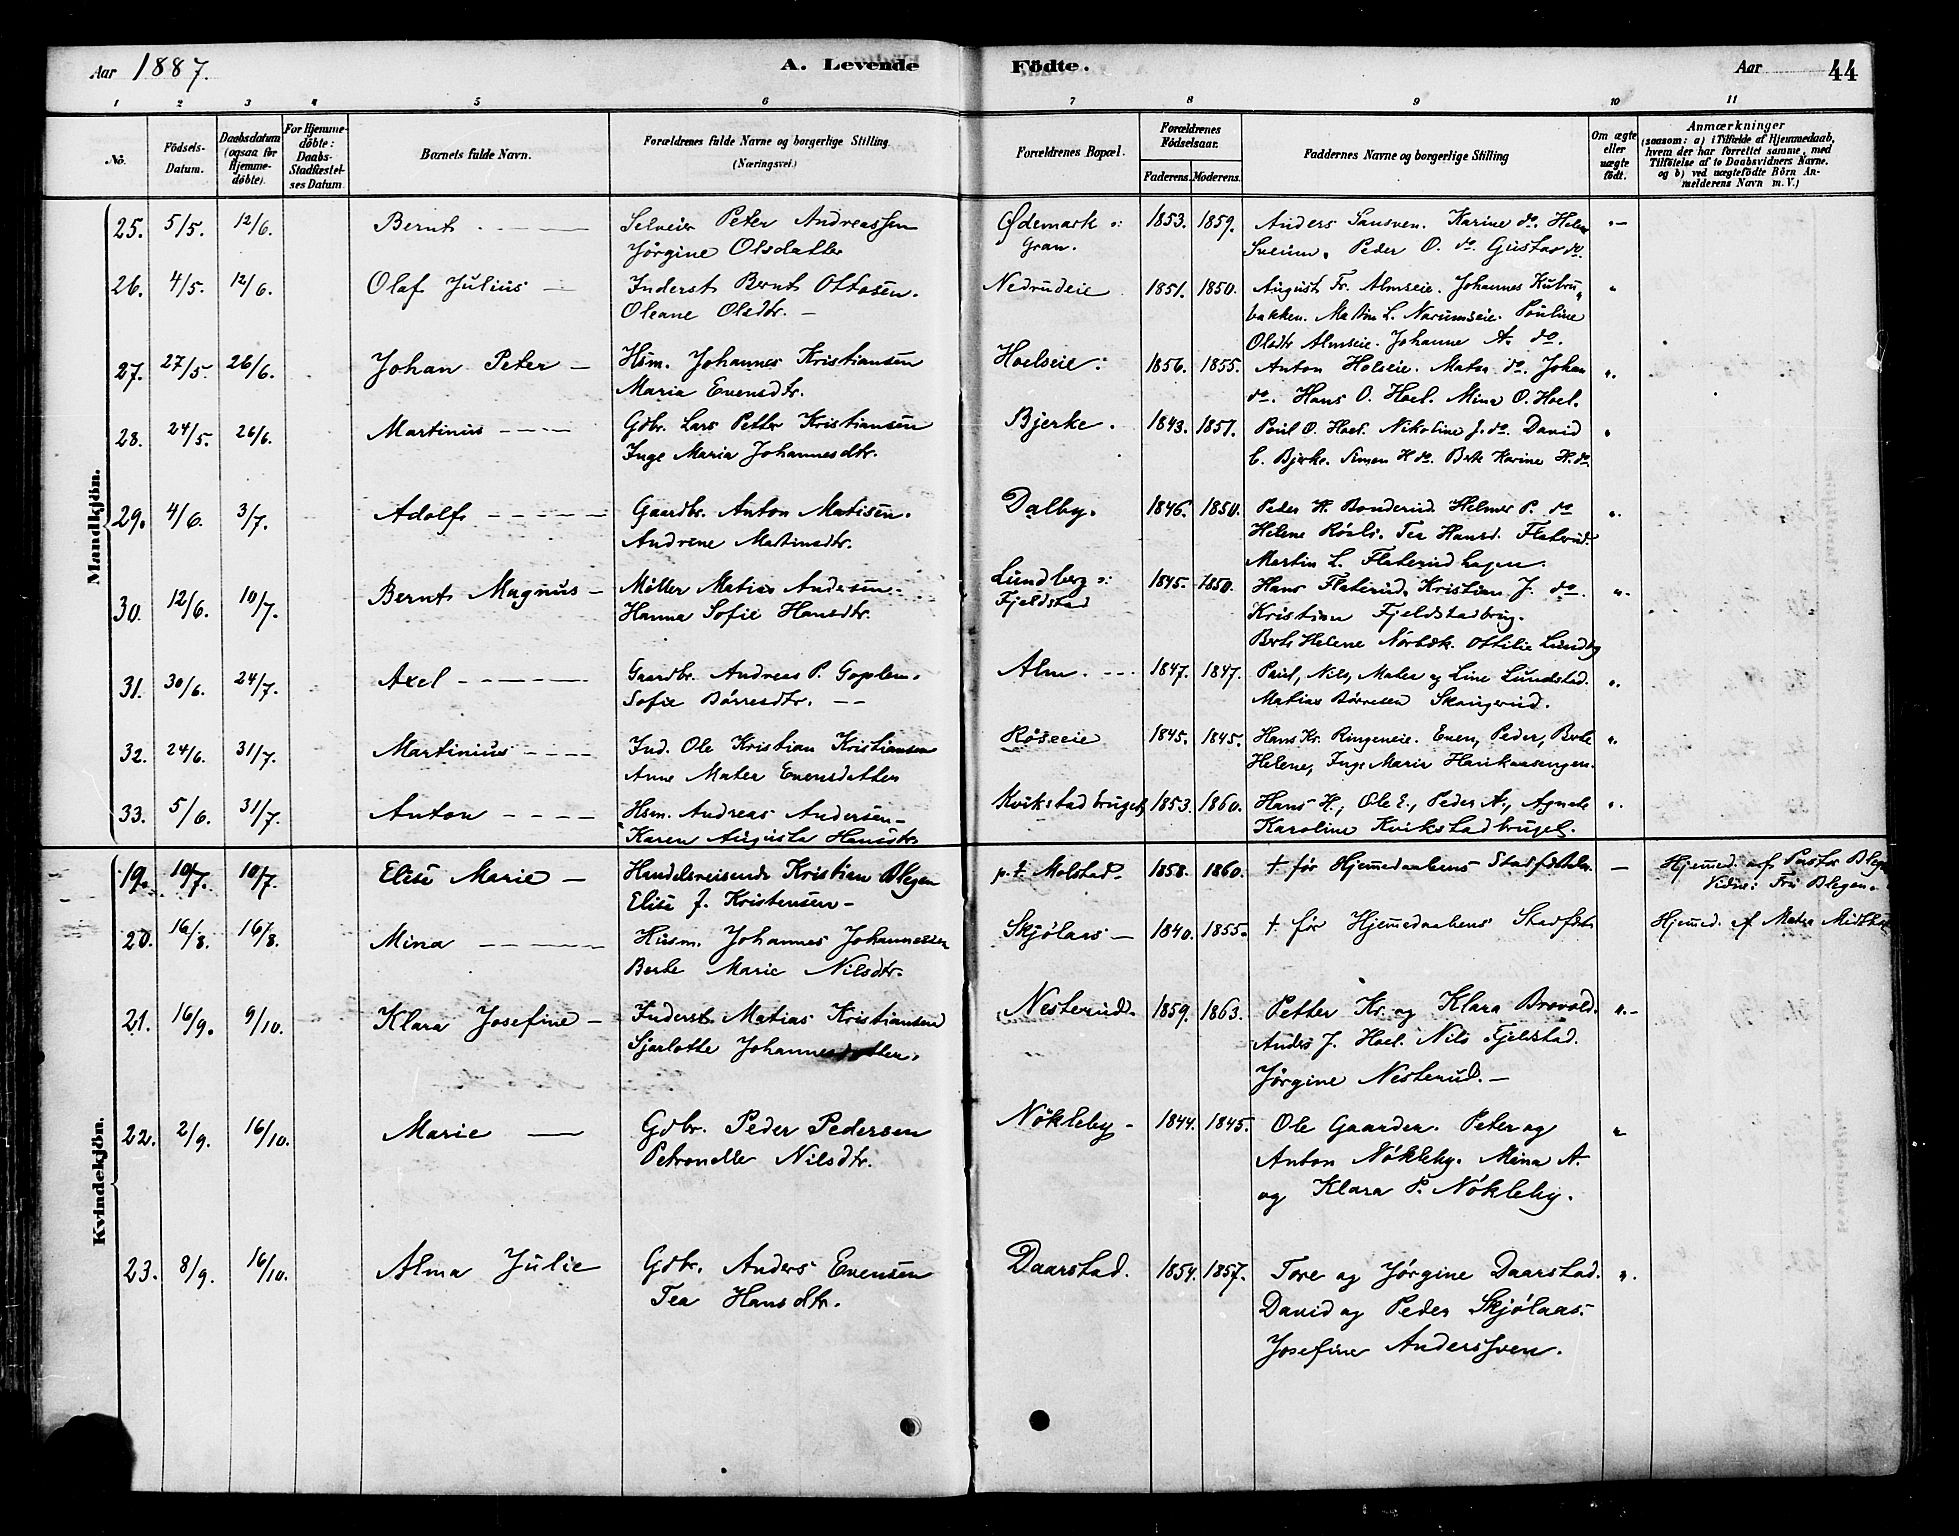 Aar 1887. A. Levende Fødte. Aar 44
1 2 3 4 5 6 7 8 9 10 11
No. Födsels-Datum. Daabsdatum (ogsaa for Hjemme-døbte). For Hjemme-døbte: Daabs-Stadfæstel-ses Datum. Barnets fulde Navn. Forældrenes fulde Navne og borgerlige Stilling (Næringsvei.) Forældrenes Bopæl. Forældrenes Födselsaar. Faderens. Moderens. Faddernes Navne og borgerlige Stilling Om ægte eller uægte født. Anmærkninger (saasom: a) i Tilfælde af Hjemmedaab, hvem der har forrettet samme, med Tilföielse af to Daabsvidners Navne, og b) ved uægtefödte Börn An-melderens Navn m. V.)
Mandkjön.
25. 5/5. 12/6. Bernt Selveier Peter Andreassen Ødemark : 1853. 1859. Anders Sansven. Karine do. Helene
Jörgine Olsdatter Gran. Sveum. Peder O. do. Gustav do.
26. 4/5. 12/6. Olaf Julius Inderst Bernt Ottosen. Nedrudeie 1851. 1850. August Fr. Almseie. Johannes Kubru
Oleane Olsdtr. bakken. Martin L. Narumseie. Pauline
Olsdtr Almseie. Johanne A. do.
27. 27/5. 26/6. Johan Peter Hsm. Johannes Kristiansen Hoelseie. 1856. 1855. Anton Holseie. Matea do. Johan
Maria Evensdtr. do. Hans O. Hoel. Mina O. Hoel.
28. 24/5. 26/6. Martinus Gdbr. Lars Petter Kristiansen Bjerke. 1843. 1851. Paul O. Hoel. Nikoline J. do. David
Inge Maria Johannesdtr. C. Bjerke. Simen H do. Berte Karine H. do.
29. 4/6. 3/7. Adolf Gaardbr. Anton Matisen. Dalby. 1846. 1850. Peder H. Bonderud. Helmer P. do
Andrine Martinsdtr. Helene Rösli. Tea Hansd. Flaterud.
Martin L. Flaterudhagen.
30. 12/6. 10/7. Bernt Magnus Möller Matias Andersen Lundberg : 1845. 1850. Hans Flaterud. Kristian J. do.
Hanna Sofie Hansdtr. Fjeldstad Kristian Fjeldstadbrug.
Berte Helene Nörbæk. Ottilie Lundby
31. 30/6. 24/7. Axel Gaardbr. Andreas P. Goplem. Alm. 1847. 1847. Paul, Nils, Mater og Line Lundstad.
Sofie Börresdtr. Matias Börresen Skangerud.
32. 24/6. 31/7. Martinius Ind. Ole Kristian Kristiansen Röiseie 1845. 1845. Hans Kr. Ringeneie. Even, Peder, Berte
Anne Mater Evensdatter Helene, Inge Marie Haukaasengen.
33. 5/6. 31/7. Anton Hsm. Andreas Andersen Kvikstadbruget 1853. 1860. Hans H., Ole E., Peder A., Agnete
Karen Augusta Hansdtr. Karoline Kvikstadbruget.
Kvindekjön.
19. 10/7. 10/7. Elise Marie Handelsreisende Kristian Blegen p.t. Molstad 1858. 1860. † før Hjemmedaabens Stadfæstelse. Hjemmed. af Pastor Blegen
Elise J. Kristensen Vidne: Fru Blegen.
20. 16/8. 16/8. Mina Husm. Johannes Johannessen Skjölaas 1840. 1855. † før Hjemmedaabens Stadfæst. Hjemmed. af Matea
Berte Marie Nilsdtr.
21. 16/9. 9/10. Klara Josefine Inderst Matias Kristiansen Nesterud. 1859. 1863. Petter Kr. og Klara Brovold.
Sjarlotte Johannesdatter. Anders J. Hoel. Nils Fjeldstad.
Jörgine Nesterud.
22. 2/9. 16/10. Marie Gdbr. Peder Pedersen Nökleby 1844. 1845. Ole Gaarder. Peter og
Petronelle Nilsdtr. Anton Nökleby. Mina A.
og Klara P. Nökleby.
23. 8/9. 16/10. Alma Julie Gdbr. Anders Evensen Daarstad. 1854. 1857. Tore og Jörgine Daarstad.
Tea Hansdtr. David og Peder Skjölaas
Josefine Andersven.